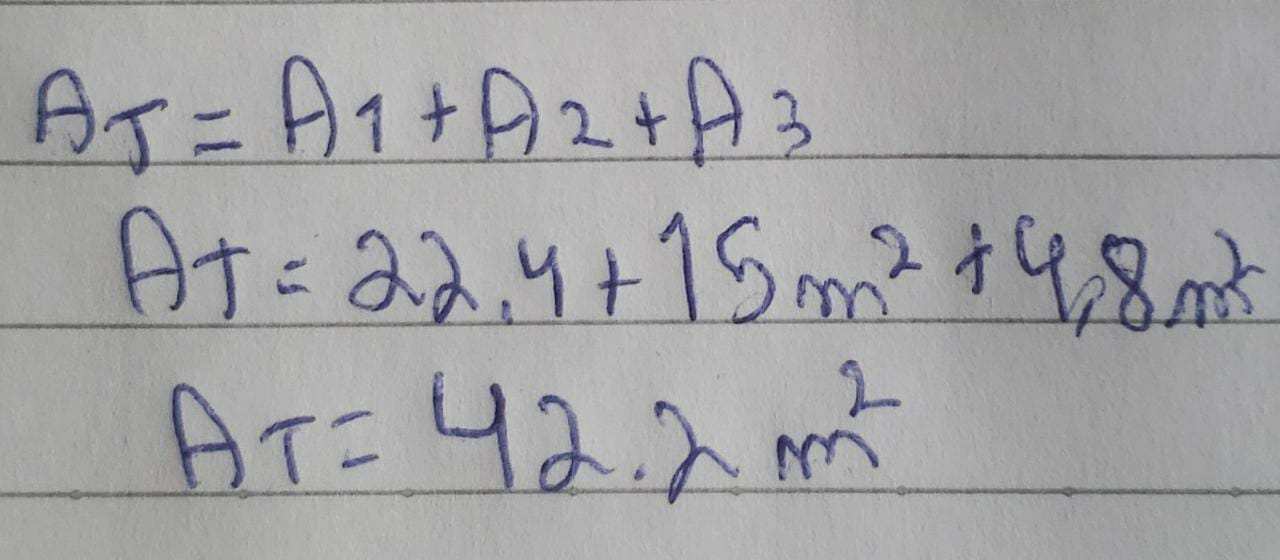 AT = A1 + A2 + A3
AT = 22.4 + 15m² + 4,8m²
AT = 42.2 m²